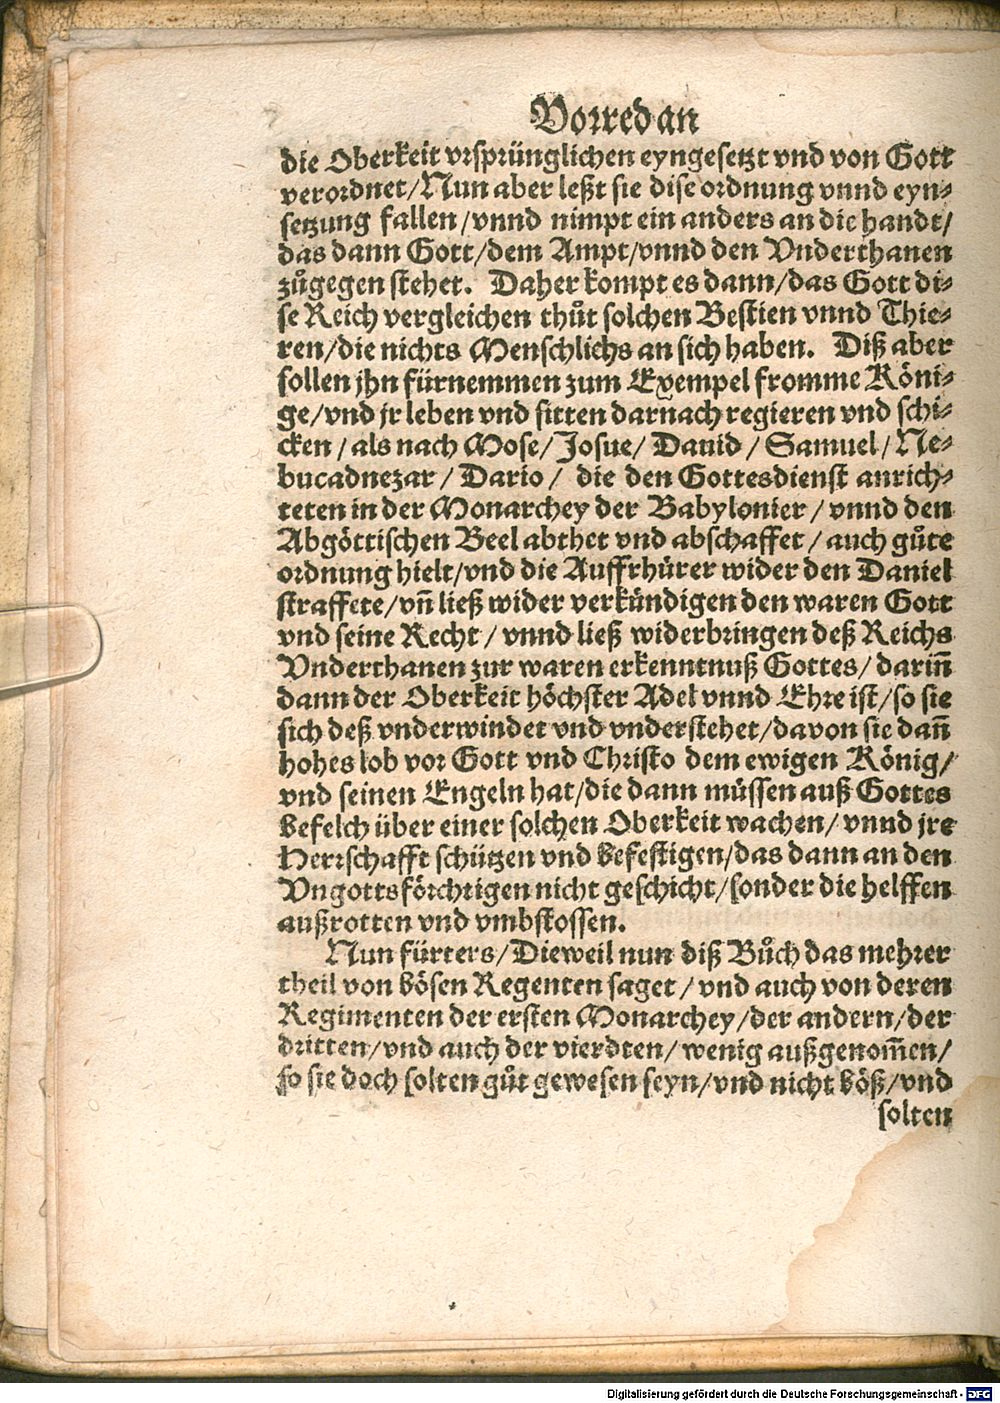 Vorred an
die Oberkeit vrsprünglichen eyngesetzt vnd von Gott
verordnet/Nun aber leßt sie dise ordnung vnnd eyn-
setzung fallen/vnnd nimpt ein anders an die handt/
das dann Gott/dem Ampt/vnnd den Vnderthanen
zůgegen stehet. Daher kompt es dann/das Gott di-
se Reich vergleichen thůt solchen Bestien vnnd Thie-
ren/die nichts Menschlichs an sich haben. Diß aber
sollen jhn fürnemmen zum Exempel fromme Köni-
ge/vnd jr leben vnd sitten darnach regieren vnd schi-
cken/als nach Mose/Josue/Dauid/Samuel/Ne-
bucadnezar/Dario/ die den Gottesdienst anrich-
teten in der Monarchey der Babylonier/vnnd den
Abgöttischen Beel abthet vnd abschaffet/auch gůte
ordnung hielt/vnd die Auffrhürer wider den Daniel
straffete/vn̄ ließ wider verkündigen den waren Gott
vnd seine Recht/vnnd ließ widerbringen deß Reichs
Vnderthanen zur waren erkenntnuß Gottes/darin̄
dann der Oberkeit höchster Adel vnnd Ehre ist/so sie
sich deß vnderwindet vnd vnderstehet/davon sie dan̄
hohes lob vor Gott vnd Christo dem ewigen König/
vnd seinen Engeln hat/die dann müssen auß Gottes
befelch über einer solchen Oberkeit wachen/vnnd jre
Herrschafft schützen vnd befestigen/das dann an den
Vngottsförchtigen nicht geschicht/sonder die helffen
außrotten vnd vmbstossen.
Nun fürters/Dieweil nun diß Bůch das mehrer
theil von bösen Regenten saget/vnd auch von deren
Regimenten der ersten Monarchey/der andern/der
dritten/vnd auch der vierdten/wenig außgenom̄en/
so sie doch solten gůt gewesen seyn/vnd nicht böß/vnd
solten
Digitalisierung gefördert durch die Deutsche Forschungsgemeinschaft - DFG